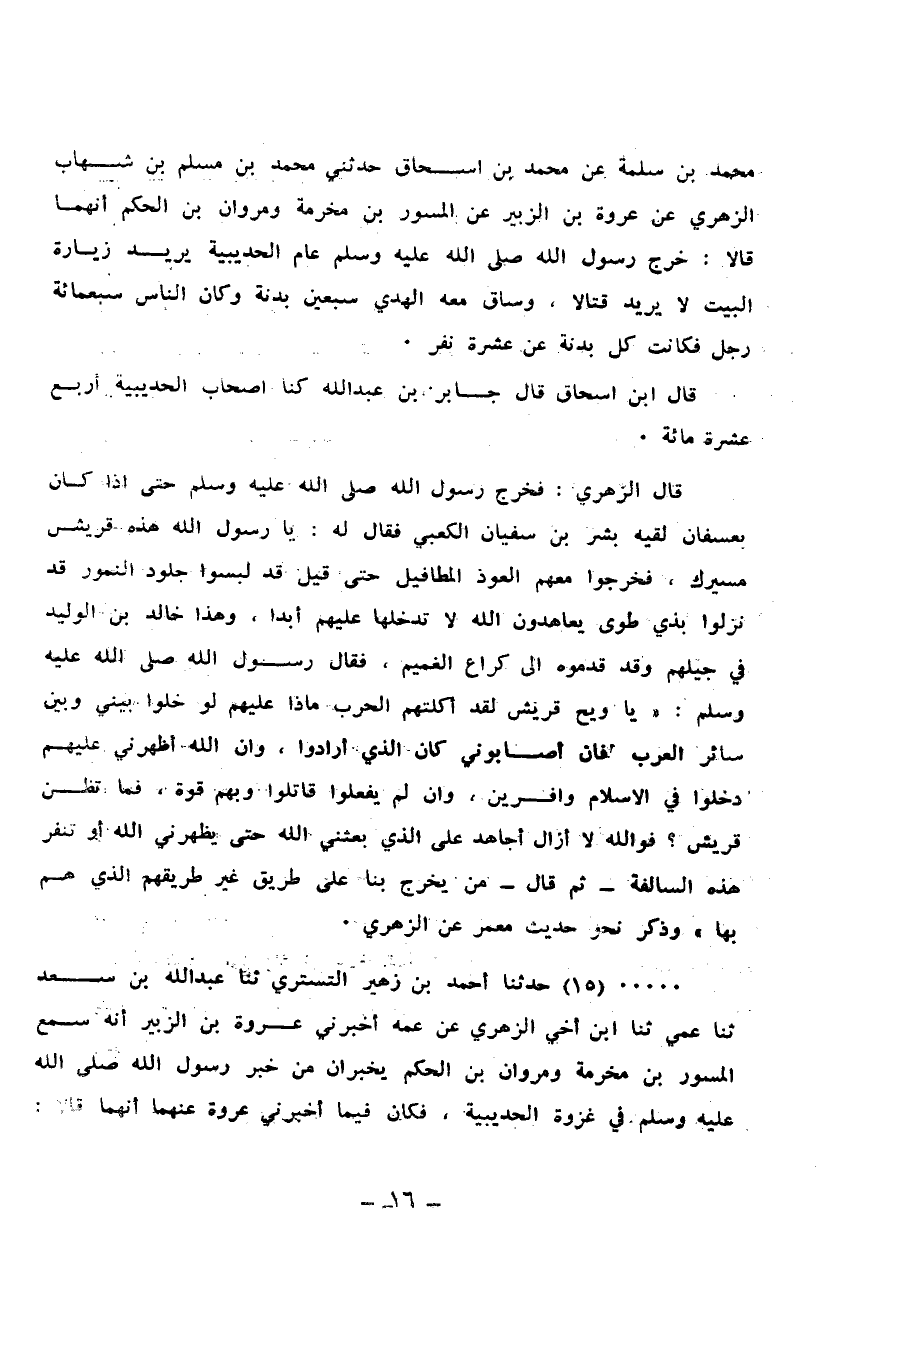 محمد بن سلمة عن محمد بن اسحاق حدثني محمد بن مسلم بن شهاب
الزهري عن عروة بن الزبير عن المسور بن مخرمة ومروان بن الحكم أنهما
قالا : خرج رسول الله صلى الله عليه وسلم عام الحديبية يريد زيارة
البيت لا يريد قتالا ، وساق معه الهدي سبعين بدنة وكان الناس سبعمائة
رجل فكانت كل بدنة عن عشرة نفر ٠
قال ابن اسحاق قال جابر بن عبدالله كنا اصحاب الحديبية أربع
عشرة مائة ٠
قال الزهري : فخرج رسول الله صلى الله عليه وسلم حتى اذا كان
بعسفان لقيه بشر بن سفيان الكعبي فقال له : يا رسول الله هذه قريش
مسيرك ، فخرجوا معهم العوذ المطافيل حتى قيل قد لبسوا جلود النمور قد
نزلوا بذي طوى يعاهدون الله لا تدخلها عليهم أبدا ، وهذا خالد بن الوليد
في جيلهم وقد قدموه الى كراع الغميم ، فقال رسول الله صلى الله عليه
وسلم : « يا ويح قريش لقد أكلتهم الحرب ماذا عليهم لو خلوا بيني وبين
سائر العرب فان أصابوني كان الذي أرادوا ، وان الله أظهرني عليهم
دخلوا في الاسلام وافرين ، وان لم يفعلوا قاتلوا وبهم قوة ، فما تظن
قريش ؟ فوالله لا أزال أجاهد على الذي بعثني الله حتى يظهرني الله أو تنفر
هذه السالفة – ثم قال – من يخرج بنا على طريق غير طريقهم الذي هم
بها » وذكر نحو حديث معمر عن الزهري ٠
٠٠٠٠٠ (١٥) حدثنا أحمد بن زهير التستري ثنا عبدالله بن سعد
ثنا عمي ثنا ابن أخي الزهري عن عمه أخبرني عروة بن الزبير أنه سمع
المسور بن مخرمة ومروان بن الحكم يخبران من خبر رسول الله صلى الله
عليه وسلم في غزوة الحديبية ، فكان فيما أخبرني عروة عنهما أنهما قالا :
– ١٦ –